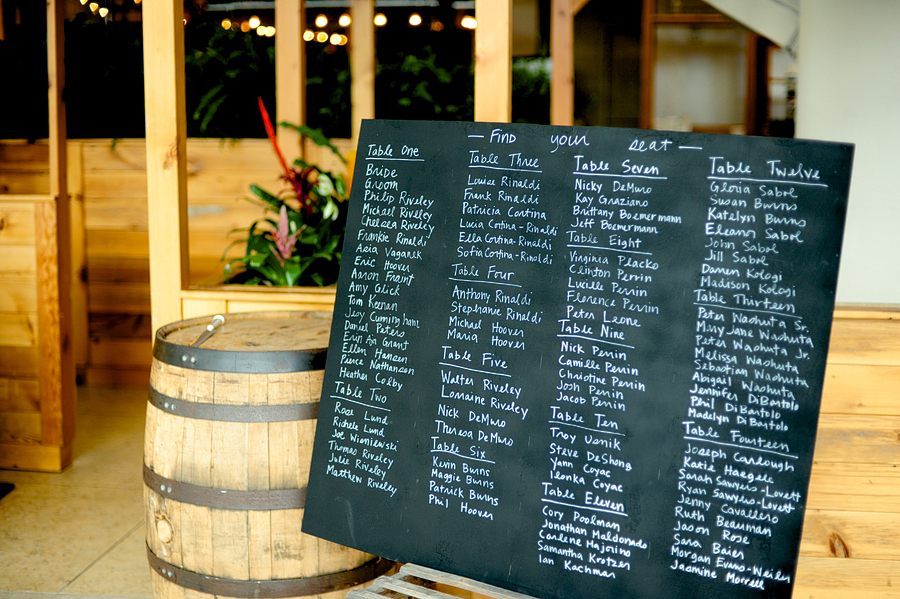 — Find your seat —
Table One
Bride
Groom
Philip Riveley
Michael Riveley
Chelsea Riveley
Frankie Rinaldi
Asia Vaganek
Eric Hoover
Aaron Fraint
Amy Glick
Tom Keenan
Joey Cunningham
Daniel Peters
Erin Ax Grant
Ellen Hansen
Pierce Nathansen
Heather Colby
Table Two
Rose Lund
Richele Lund
Joe Wisniewski
Thomas Riveley
Julie Riveley
Matthew Riveley
Table Three
Louise Rinaldi
Frank Rinaldi
Patricia Contina
Lucia Contina-Rinaldi
Ella Contina-Rinaldi
Sofia Contina-Rinaldi
Table Four
Anthony Rinaldi
Stephanie Rinaldi
Michael Hoover
Maria Hoover
Table Five
Walter Riveley
Lorraine Riveley
Nick DeMuro
Theresa DeMuro
Table Six
Kevin Bunns
Maggie Bunns
Patrick Bunns
Phil Hoover
Table Seven
Nicky DeMuro
Kay Graziano
Brittany Boemermann
Jeff Boemermann
Table Eight
Virginia Placko
Clinton Perrin
Lucille Perrin
Florence Perrin
Peter Leone
Table Nine
Nick Perrin
Camille Perrin
Christine Perrin
Josh Perrin
Jacob Perrin
Table Ten
Troy Usnik
Steve DeShong
Yann Coyac
Ilonka Coyac
Table Eleven
Cory Poolman
Jonathan Maldonado
Carlene Majorino
Samantha Krotzen
Ian Kachman
Table Twelve
Gloria Sabol
Susan Burns
Katelyn Burns
Eleanor Sabol
John Sabol
Jill Sabol
Darren Kologi
Madison Kologi
Table Thirteen
Peter Washuta Sr.
Mary Jane Washuta
Peter Washuta Jr.
Melissa Washuta
Sebastian Washuta
Abigail Washuta
Jennifer DiBartolo
Phil DiBartolo
Madelyn DiBartolo
Table Fourteen
Joseph Candough
Katie Haegele
Sarah Sawyers-Lovett
Ryan Sawyers-Lovett
Jenny Cavallero
Ruth Beauman
Jason Rose
Sara Baier
Morgan Evans-Weiler
Jasmine Morrell